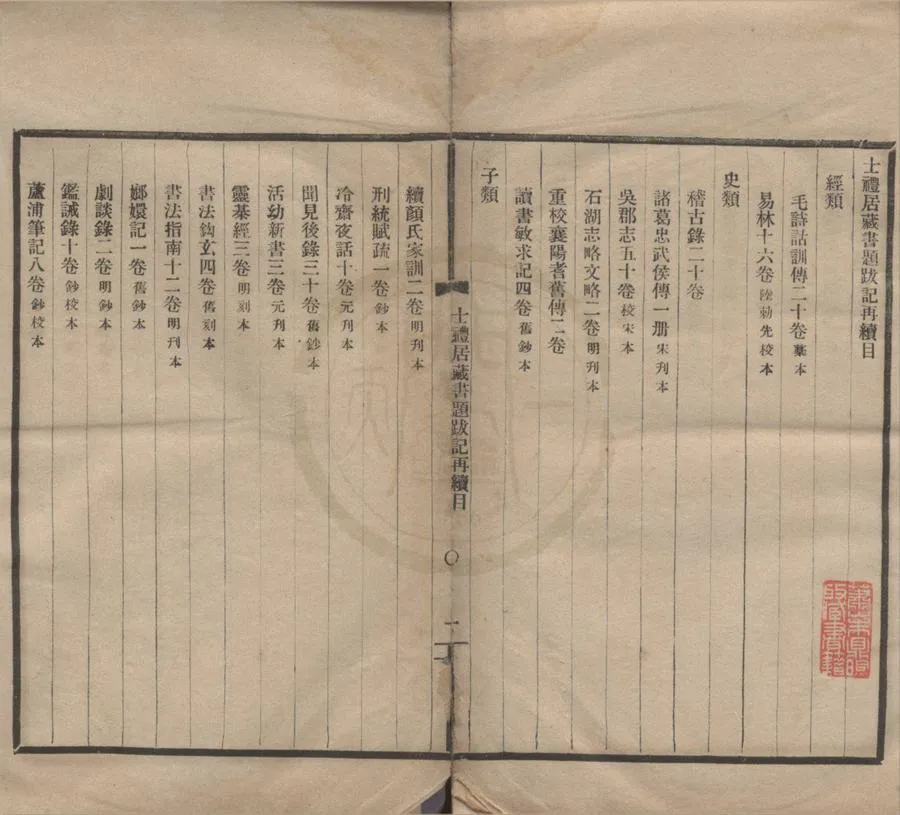 士禮居藏書題跋記再續目
經類
毛詩詁訓傳二十卷 摹本
易林十六卷 陸勑先校本
史類
稽古錄二十卷
諸葛忠武侯傳一册 宋刊本
吳郡志五十卷 校宋本
石湖志略文略二卷 明刊本
重校襄陽耆舊傳二卷
讀書敏求記四卷 舊鈔本
子類
士禮居藏書題跋記再續目 〇 一
續顏氏家訓二卷 明刊本
刑統賦疏一卷 鈔本
冷齋夜話十卷 元刊本
聞見後錄三十卷 舊鈔本
活幼新書三卷 元刊本
靈棊經三卷 明刻本
書法鈎玄四卷 舊刻本
書法指南十二卷 明刊本
嫏嬛記一卷 舊鈔本
劇談錄二卷 明鈔本
鑑誡錄十卷 鈔校本
蘆浦筆記八卷 鈔校本